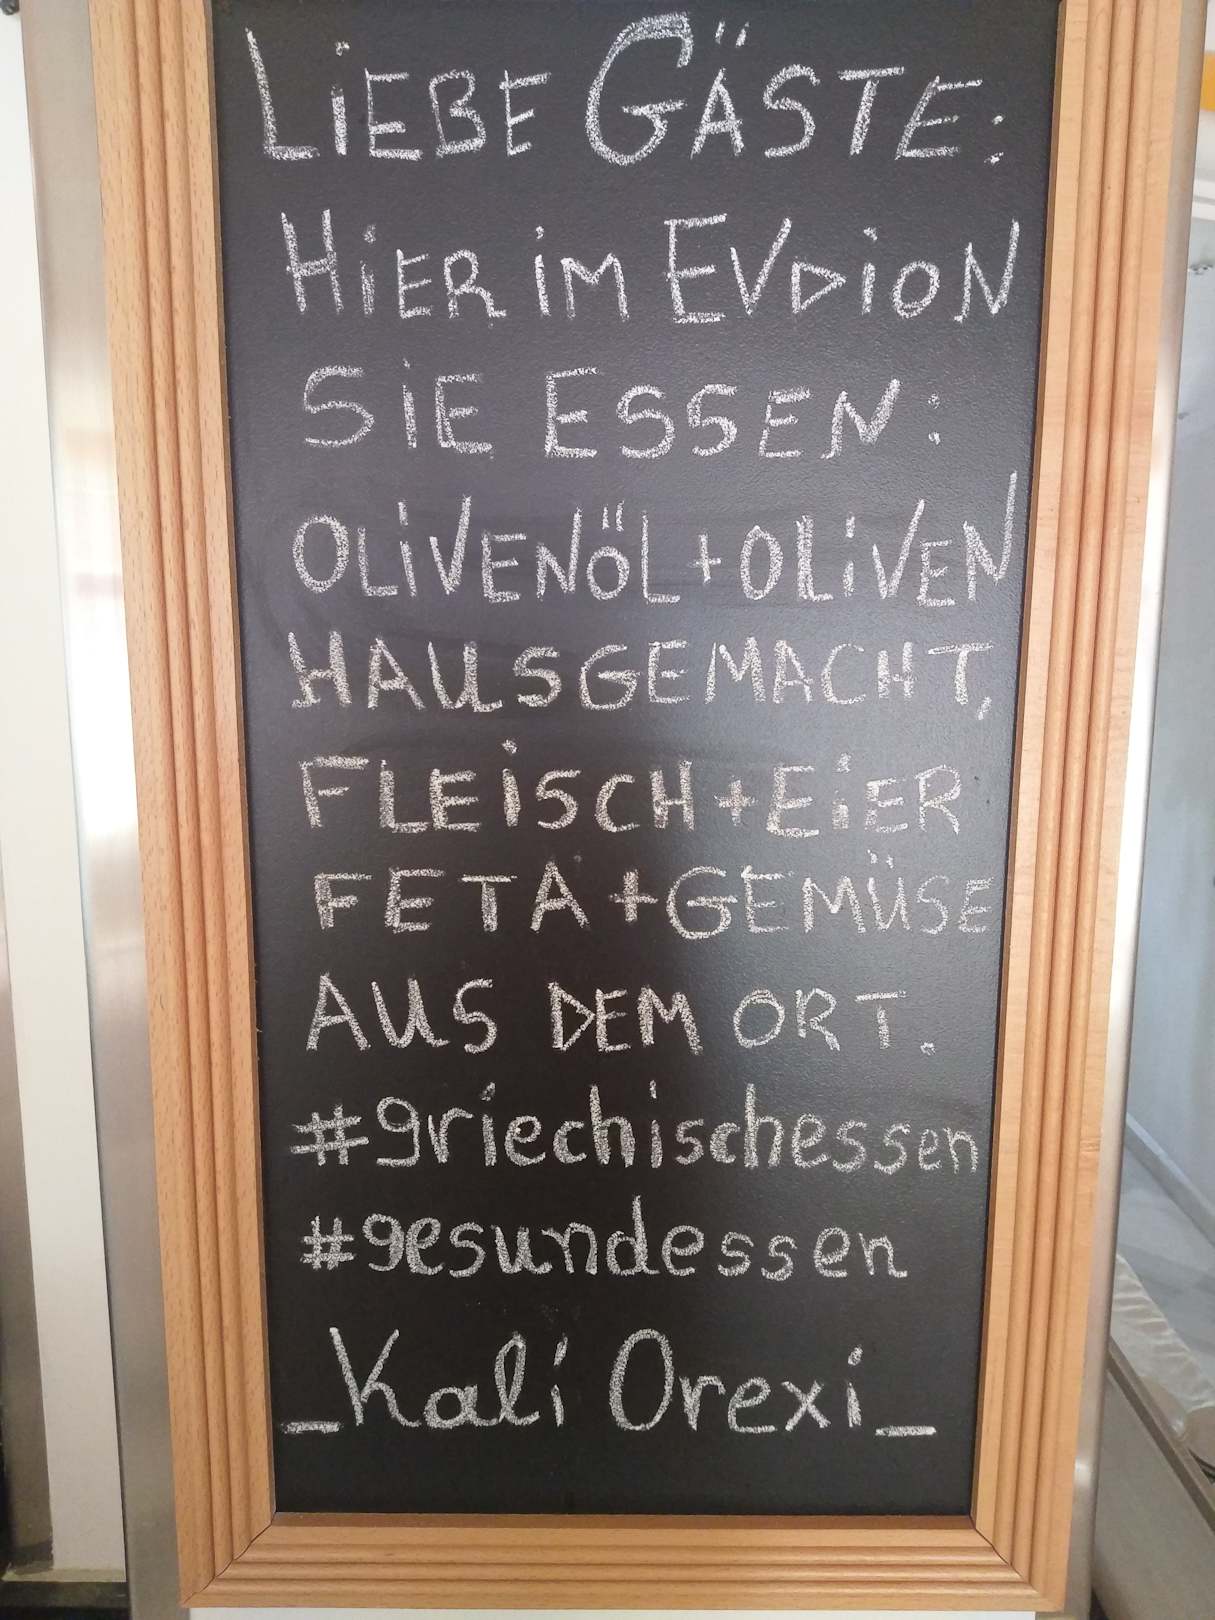 LiEBE GÄSTE:
HiER iM EVDiON
SiE ESSEN:
OLiVENÖL + OLiVEN
HAUSGEMACHT,
FLEiSCH + EiER
FETA + GEMÜSE
AUS DEM ORT.
#griechischessen
#gesundessen
_Kali Orexi_